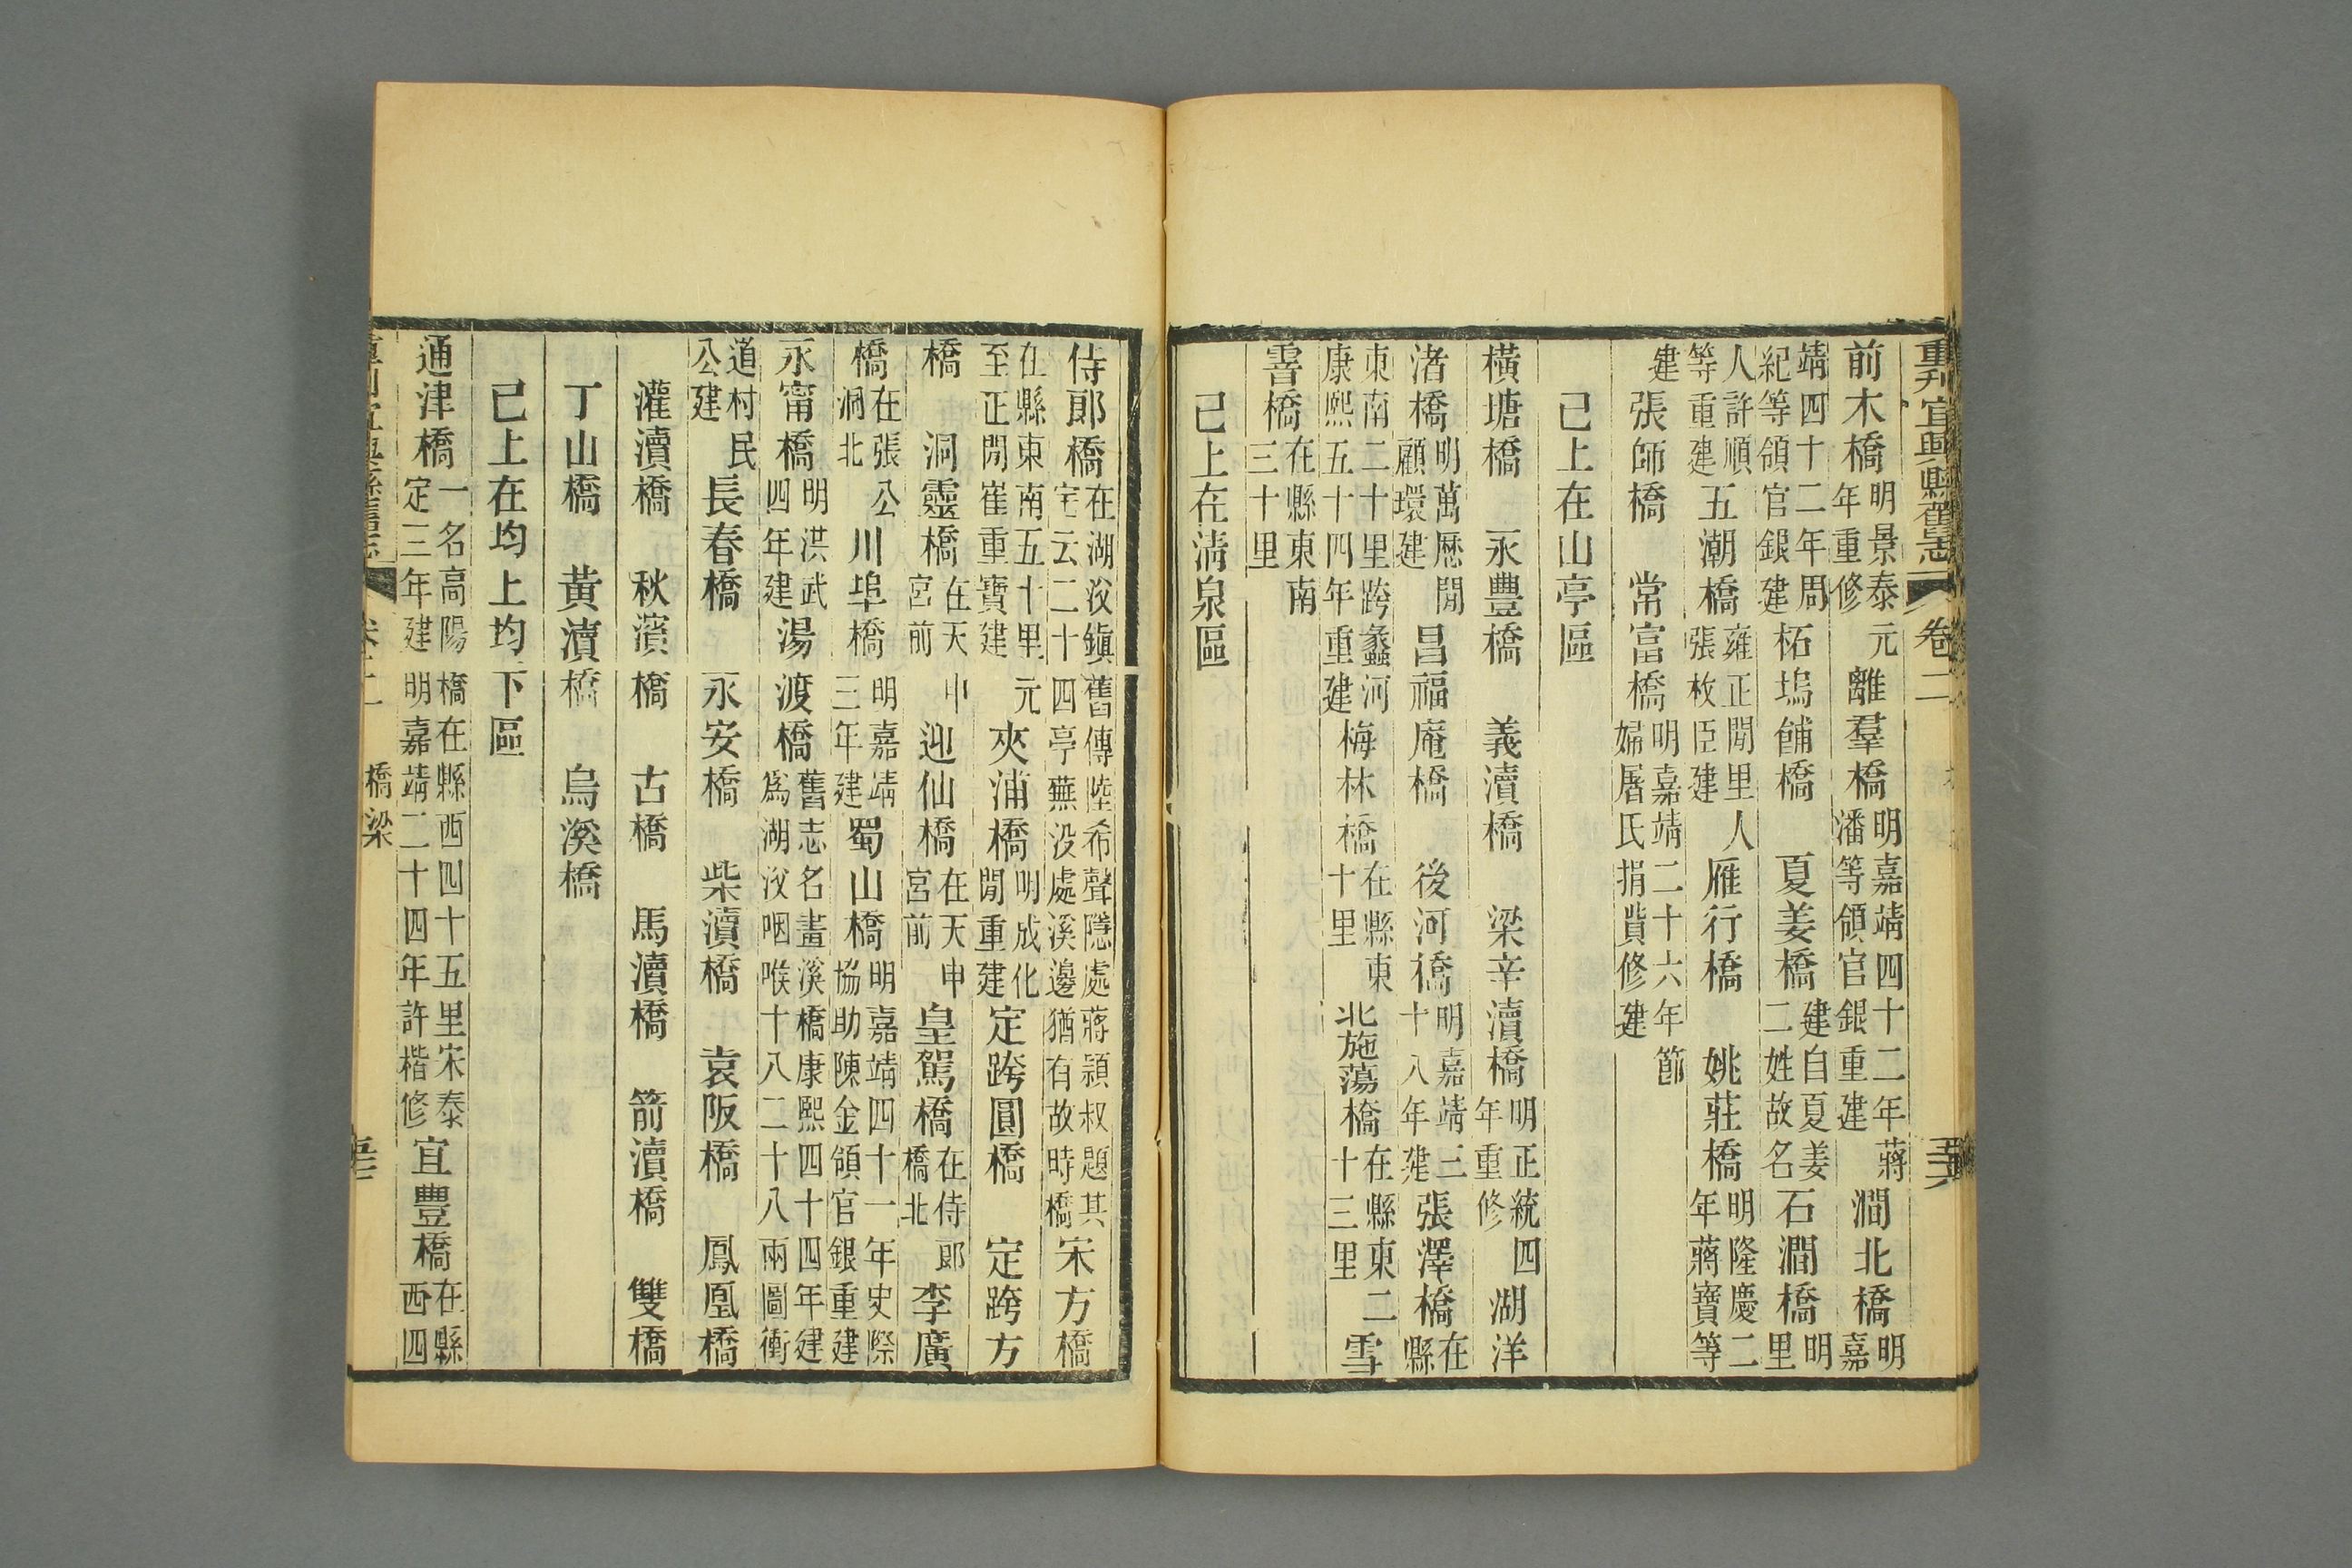 重刋宜興縣舊志 卷二
前木橋 明景泰元年重修 離羣橋 明嘉靖四十二年蔣潘等領官銀重建 澗北橋 明嘉
靖四十二年周紀等領官銀建 柘塢餔橋 夏姜橋 建自夏姜二姓故名 石澗橋 明里
人許順等重建 五潮橋 雍正閒里人張枚臣建 雁行橋 姚莊橋 明隆慶二年蔣寶等
建 張師橋 常富橋 明嘉靖二十六年節婦屠氏捐貲修建
已上在山亭區
橫塘橋 永豐橋 義瀆橋 梁辛瀆橋 明正統四年重修 湖洋
渚橋 明萬歷閒顧環建 昌福庵橋 後河橋 明嘉靖三十八年建 張澤橋 在縣
東南二十里跨蠡河康熙五十四年重建 梅林橋 在縣東十里 北施蕩橋 在縣東二十三里 雪
霅橋 在縣東南三十里
已上在清泉區
侍郎橋 在湖㳇鎮舊傳陸希聲隱處蔣頴叔題其宇云二十四亭蕪没處溪邊猶有故時橋 宋方橋
在縣東南五十里元至正閒崔重寶建 夾浦橋 明成化閒重建 定跨圓橋 定跨方
橋 洞靈橋 在天申宮前 迎仙橋 在天申宮前 皇駕橋 在侍郎橋北 李廣
橋 在張公洞北 川埠橋 明嘉靖三年建 蜀山橋 明嘉靖四十一年史際協助陳金領官銀重建
永甯橋 明洪武四年建 湯渡橋 舊志名畫溪橋康熙四十四年建爲湖㳇咽喉十八二十八兩圖衝
道村民公建 長春橋 永安橋 柴瀆橋 袁阪橋 鳳凰橋
灌瀆橋 秋濵橋 古橋 馬瀆橋 箭瀆橋 雙橋
丁山橋 黃瀆橋 烏溪橋
已上在均上均下區
通津橋 一名高陽橋在縣西四十五里宋泰定三年建明嘉靖二十四年許楷修 宜豐橋 在縣西四
橋梁